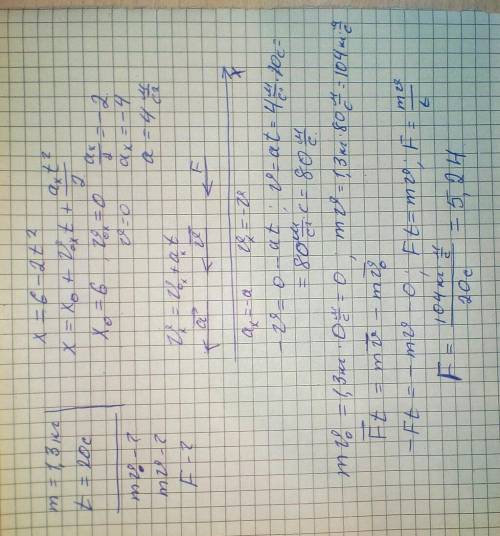 m = 1,3 кг
t = 20 с
mv₀ - ?
mv - ?
F - ?
x = 6 - 2t²
x = x₀ + v₀ₓt + aₓt²/2
x₀ = 6 v₀ₓ = 0 aₓ/2 = -2
v = 0 aₓ = -4
a = 4 м/с²
vₓ = v₀ₓ + aₓt
a⃗ v⃗ F⃗
X
aₓ = -a vₓ = -v
-v = 0 - at ; v = at = 4 м/с² · 20с =
= 80 м/с² · с = 80 м/с
mv₀ = 1,3 кг · 0 м/с = 0 ; mv = 1,3 кг · 80 м/с = 104 кг · м/с
F⃗t = mv⃗ - mv⃗₀
-Ft = -mv - 0 ; Ft = mv ; F = mv/t
F = 104 кг м/с / 20с = 5,2 Н